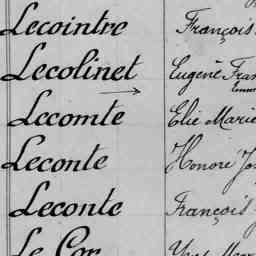 Lecointre François
Lecolinet Eugène Fran
Lecomte Elie Marie
Leconte Honoré Jo
Leconte François
Le Cor Yves Marie